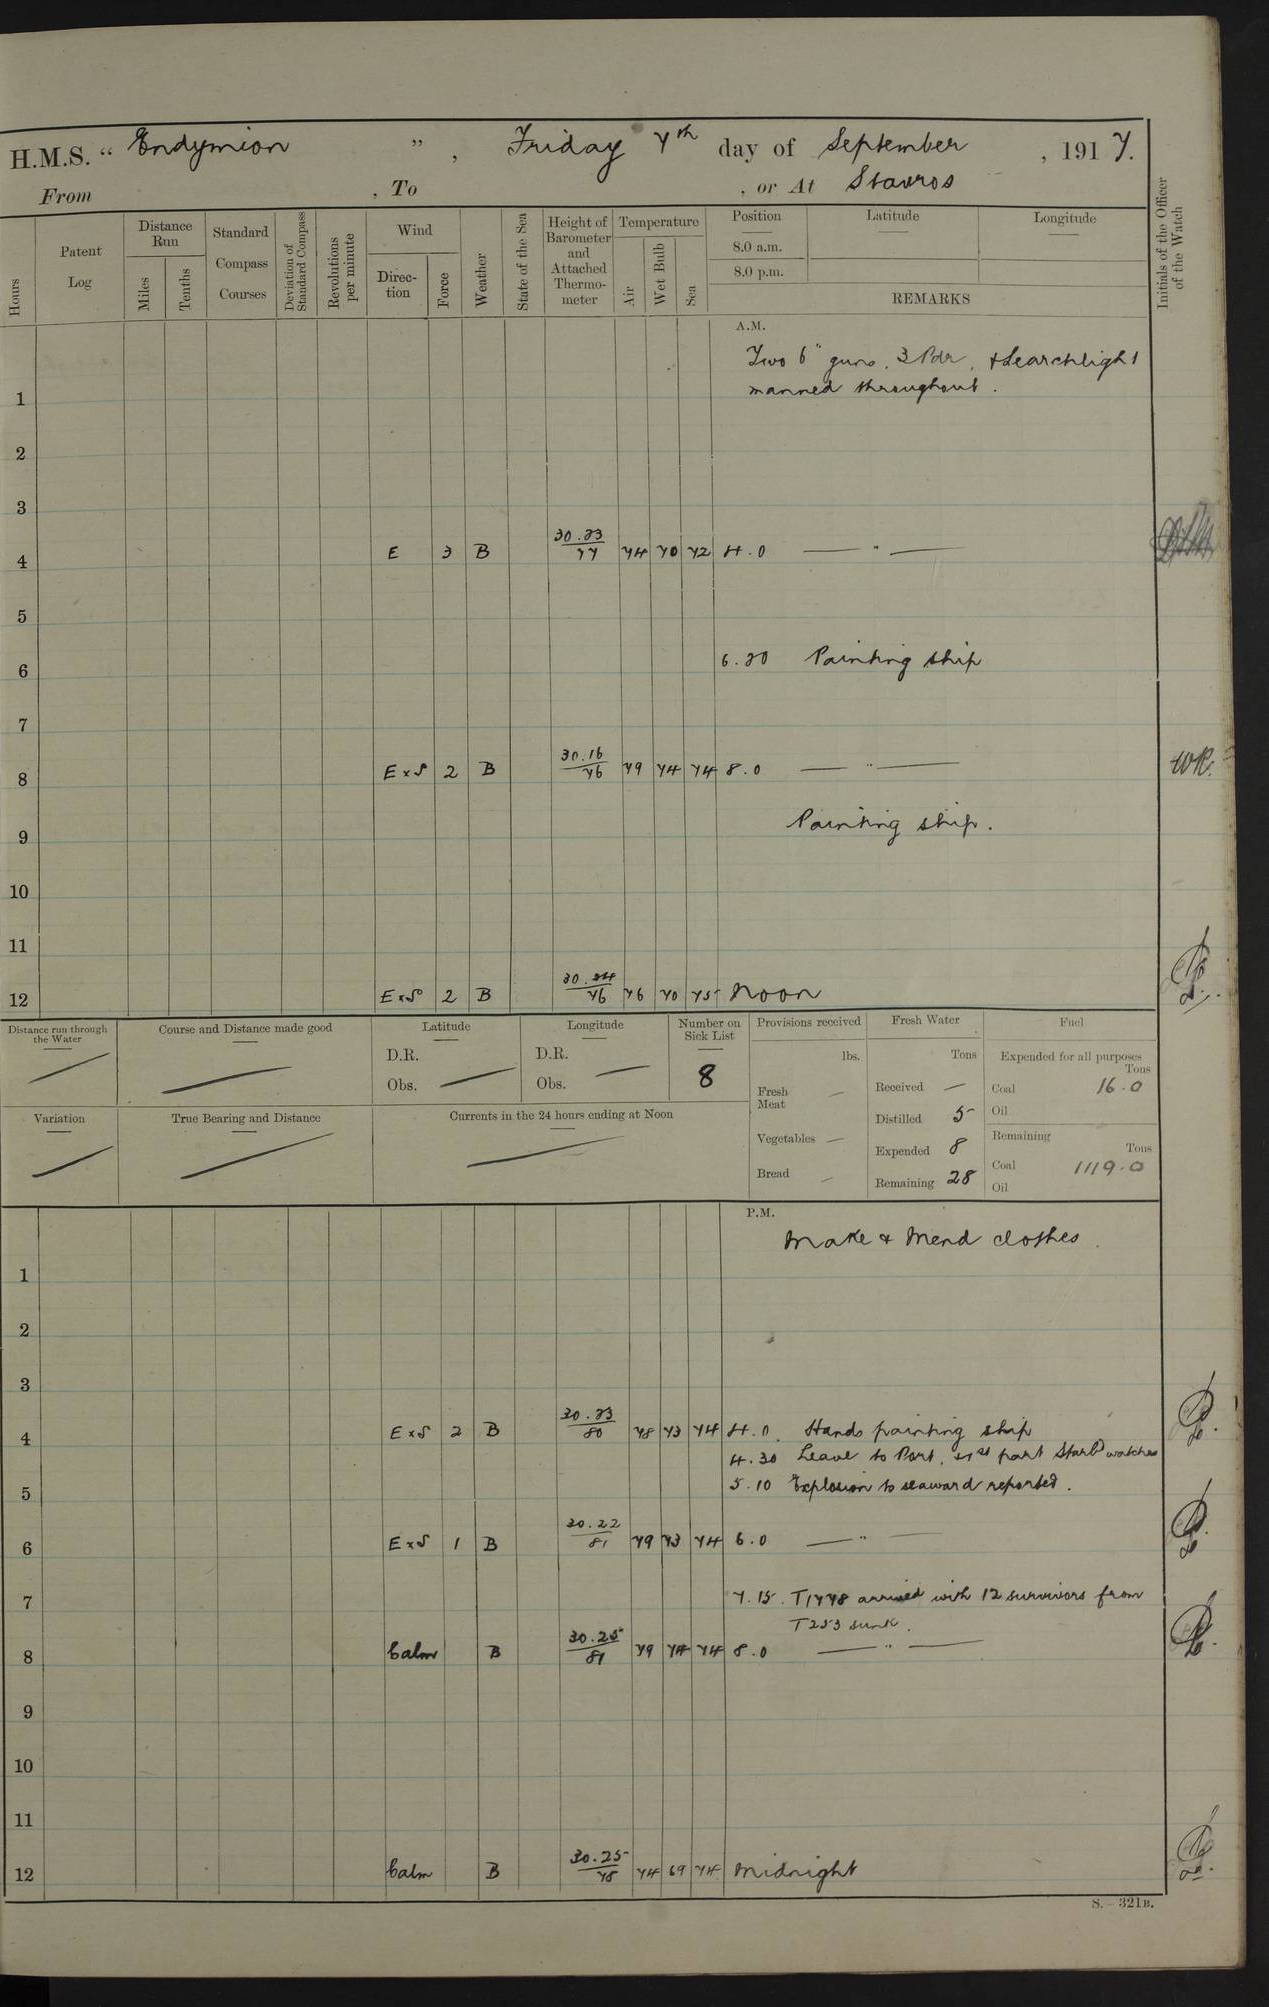 H.M.S. “ Endymion ” , Friday 7th day of September , 1917.
From , To , or At Stavros
Hours
Patent Log
Distance Run
Miles
Tenths
Standard Compass Courses
Deviation of Standard Compass
Revolutions per minute
Wind
Direc-tion
Force
Weather
State of the Sea
Height of Barometer and Attached Thermo-meter
Temperature
Air
Wet Bulb
Sea
Position
8.0 a.m.
8.0 p.m.
Latitude
Longitude
REMARKS
Initials of the Officer of the Watch
A.M.
Two 6" guns, 3 Pdr, & Searchlight
1 manned throughout.
2
3
4 E 3 B 30.23 77 74 70 72 4.0 — " —
5
6 6.20 Painting ship
7
8 E x S 2 B 30.16 76 79 74 74 8.0 — " — WR.
Painting ship.
9
10
11
12 E x S 2 B 30.24 76 76 70 75 Noon
Distance run through the Water
Course and Distance made good
Latitude
D.R.
Obs. —
Longitude
D.R.
Obs. —
Number on Sick List
8
Provisions received
lbs.
Fresh Meat —
Vegetables —
Bread —
Fresh Water
Tons
Received —
Distilled 5
Expended 8
Remaining 28
Fuel
Expended for all purposes
Tons
Coal 16.0
Oil
Remaining
Tons
Coal 1119.0
Oil
Variation
True Bearing and Distance
Currents in the 24 hours ending at Noon
P.M.
Make & Mend clothes.
1
2
3
4 E x S 2 B 30.23 80 78 73 74 4.0 Hands painting ship
4.30 Leave to Port, & 1st part Starbd watches
5 5.10 Explosion to seaward reported.
6 E x S 1 B 30.22 81 79 73 74 6.0 — " —
7 7.15. T1778 arrived with 12 survivors from
T253 sunk.
8 Calm B 30.25 81 79 74 74 8.0 — " —
9
10
11
12 Calm B 30.25 78 74 69 74 Midnight
S.—321B.